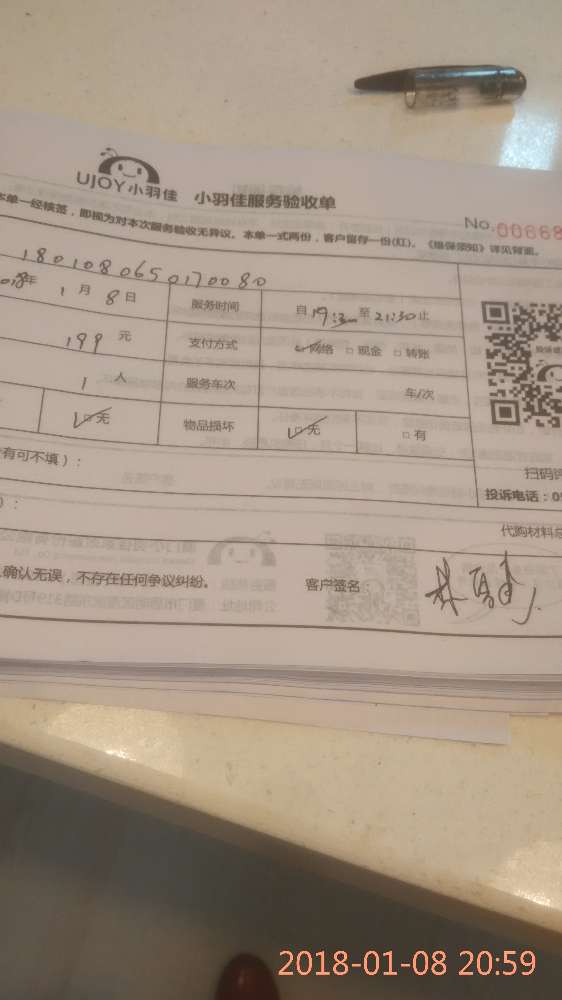 UJOY小羽佳 小羽佳服务验收单
No.00868
本单一经核签，即视为对本次服务验收无异议。本单一式两份，客户留存一份(红)。《维保须知》详见背面。
1801080650170080
2018年 1月 8日 服务时间 自 19:30 至 21:30 止
199 元 支付方式 网络 □现金 □转账
1 人 服务车次 车/次
无 物品损坏 无 □有
有可不填）：
扫码评
投诉电话：05
）：
代购材料总
确认无误，不存在任何争议纠纷。 客户签名：
2018-01-08 20:59